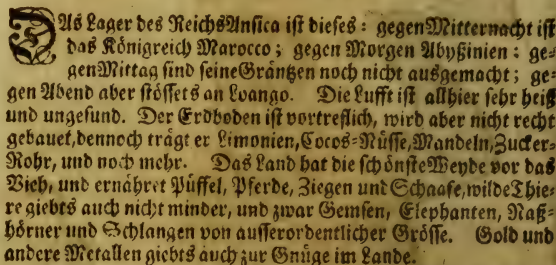 DAs Lager des Reichs Ansica ist dieses: gegen Mitternacht ist
das Königreich Marocco; gegen Morgen Abyßinien: ge-
gen Mittag sind seine Gräntzen noch nicht ausgemacht; ge-
gen Abend aber stösset es an Loango. Die Lufft ist allhier sehr heiß
und ungesund. Der Erdboden ist vortreflich, wird aber nicht recht
gebauet, dennoch trägt er Limonien, Cocos-Nüsse, Mandeln, Zucker-
Rohr, und noch mehr. Das Land hat die schönste Weyde vor das
Vieh, und ernähret Püffel, Pferde, Ziegen und Schaafe, wilde Thie-
re giebts auch nicht minder, und zwar Gemsen, Elephanten, Naß-
hörner und Schlangen von ausserordentlicher Grösse. Gold und
andere Metallen giebts auch zur Gnüge im Lande.